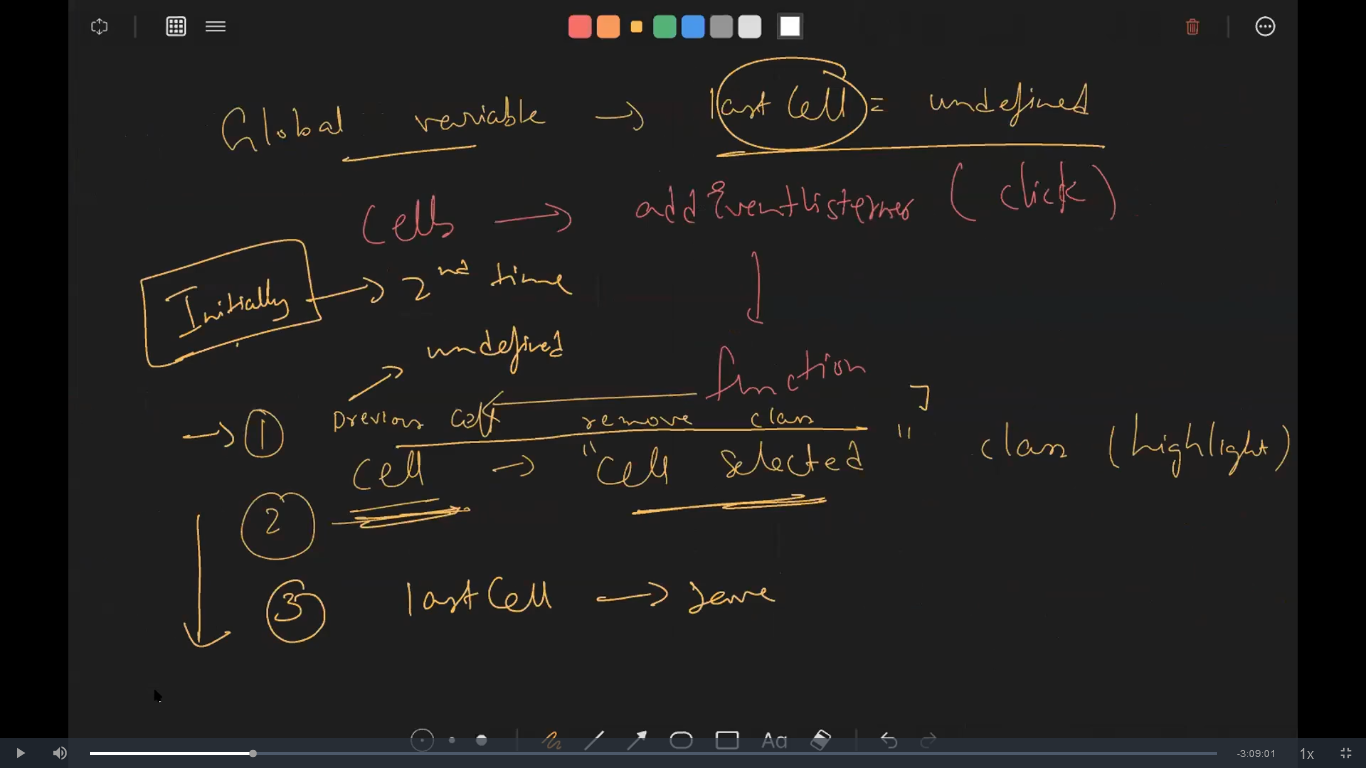 Global variable → lastCell = undefined
Cells → addEventListener (click)
Initially → 2nd time
↓
undefined
function
→ ① Previous cell remove class
cell → "cell selected" class (highlight)
②
③ lastCell → save
Aa
-3:09:01 1x